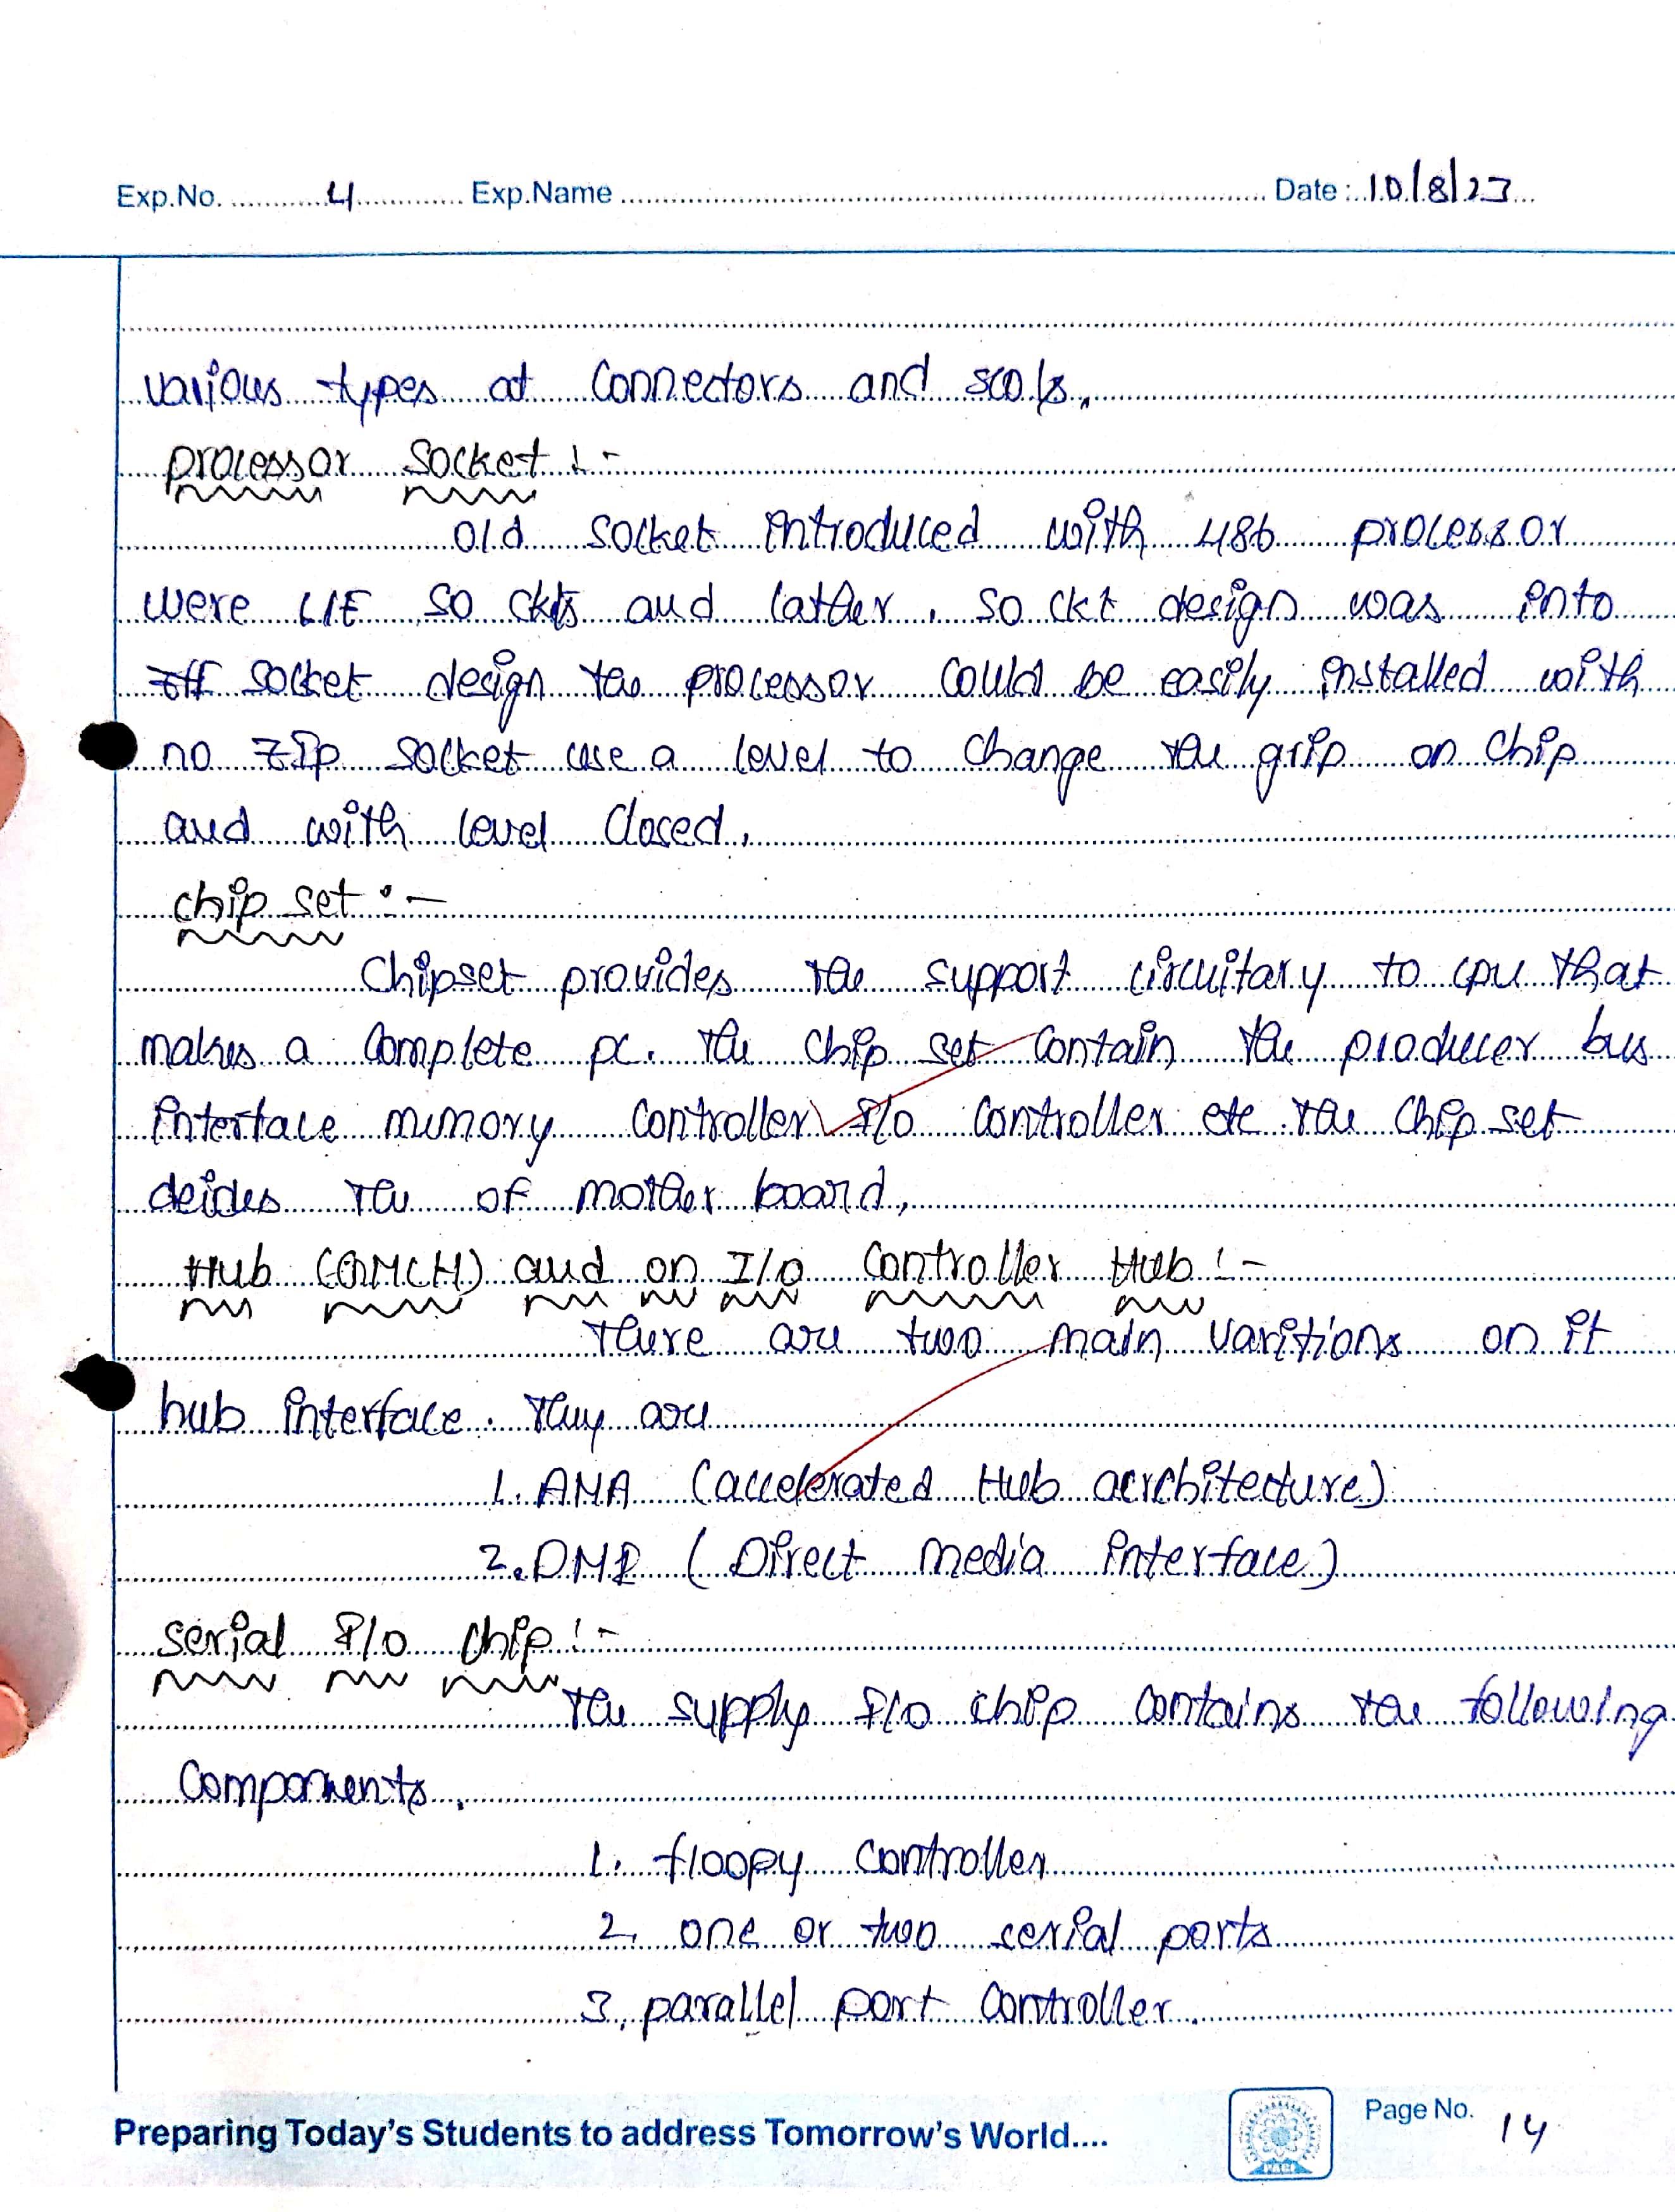 Exp.No. 4 Exp.Name Date : 10/8/23
various types at connectors and
processor socket :-
old socket introduced with 486 processor
were LIF so ckts and lather, so ckt design was into
socket design the processor could be easily installed with
no ZIP socket use a level to change the grip on chip
and with level closed.
chip set :-
Chipset provides the support circuitary to cpu that
makes a complete pc. The chip set contain the producer bus
interface mimory controller I/o controller etc the chip set
deides the of mother board,
Hub (GMCH) and on I/o controller Hub :-
there are two main varitions on it
hub interface. They are
1. AHA (accelerated Hub acrchitecture)
2. DMI (Direct media interface)
serial I/o chip :-
the supply I/o chip contains the following
Components.
1. floopy controller
2. one or two serial ports
3. parallel port controller.
Preparing Today's Students to address Tomorrow's World....
PACE
Page No. 14